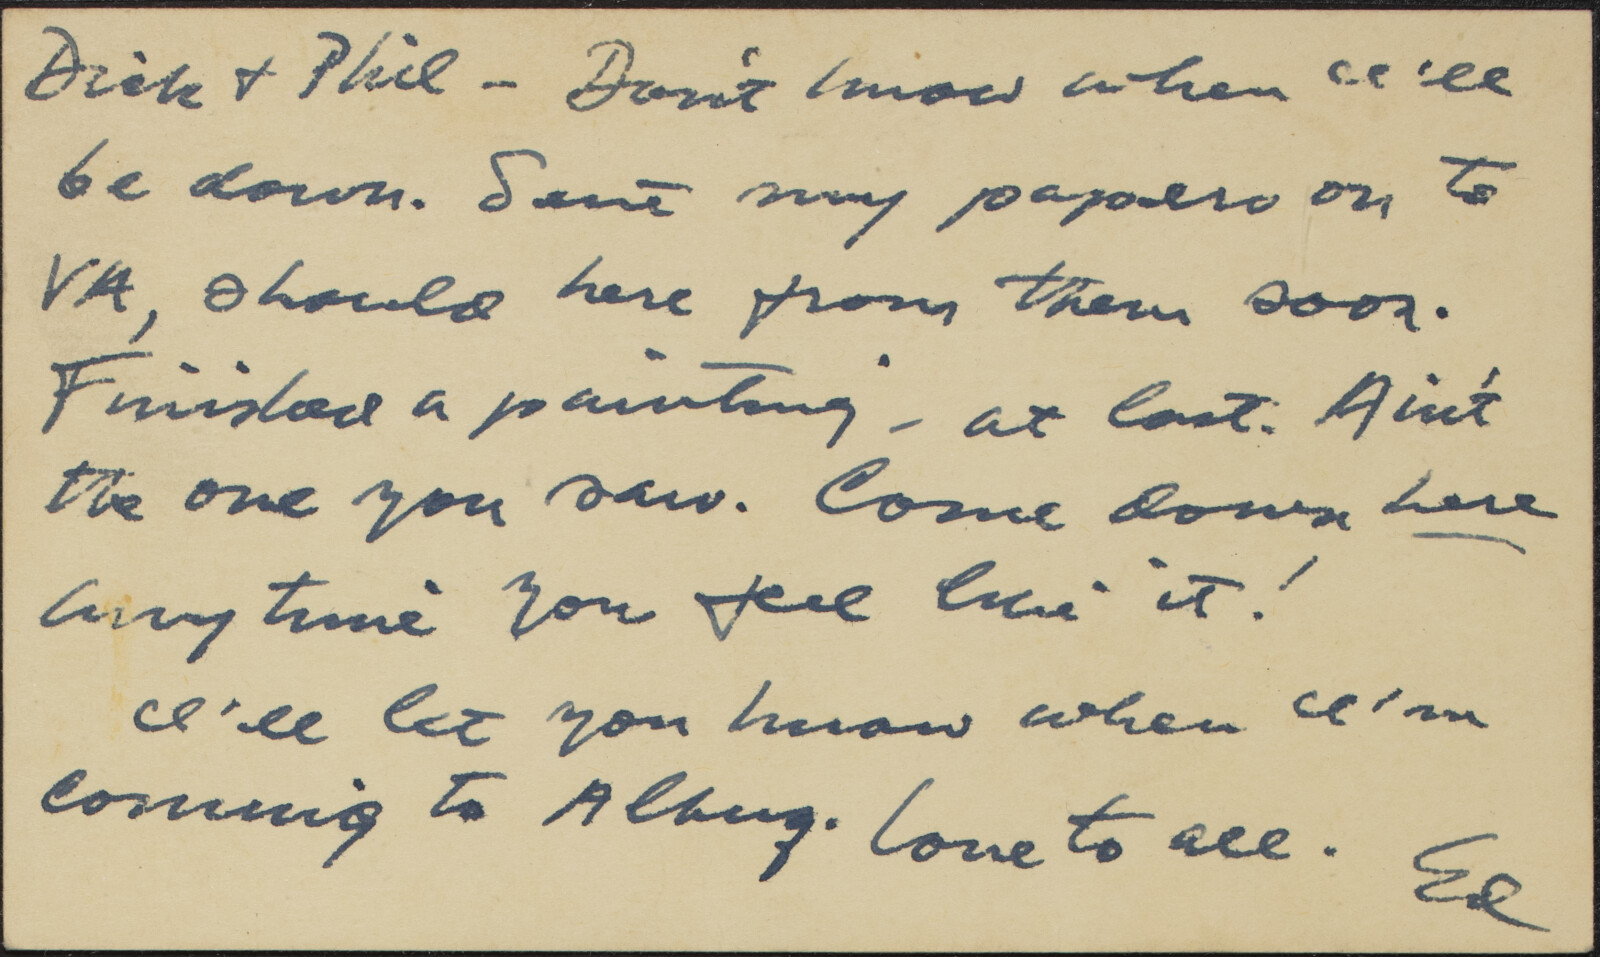 Dick + Phil - Don't know when I'll
be down. Sent my papers on to
VA, should here from them soon.
Finished a painting - at last. Ain't
the one you saw. Come down here
anytime you feel like it!
I'll let you know when I'm
coming to Albuq. Love to all.
Ed